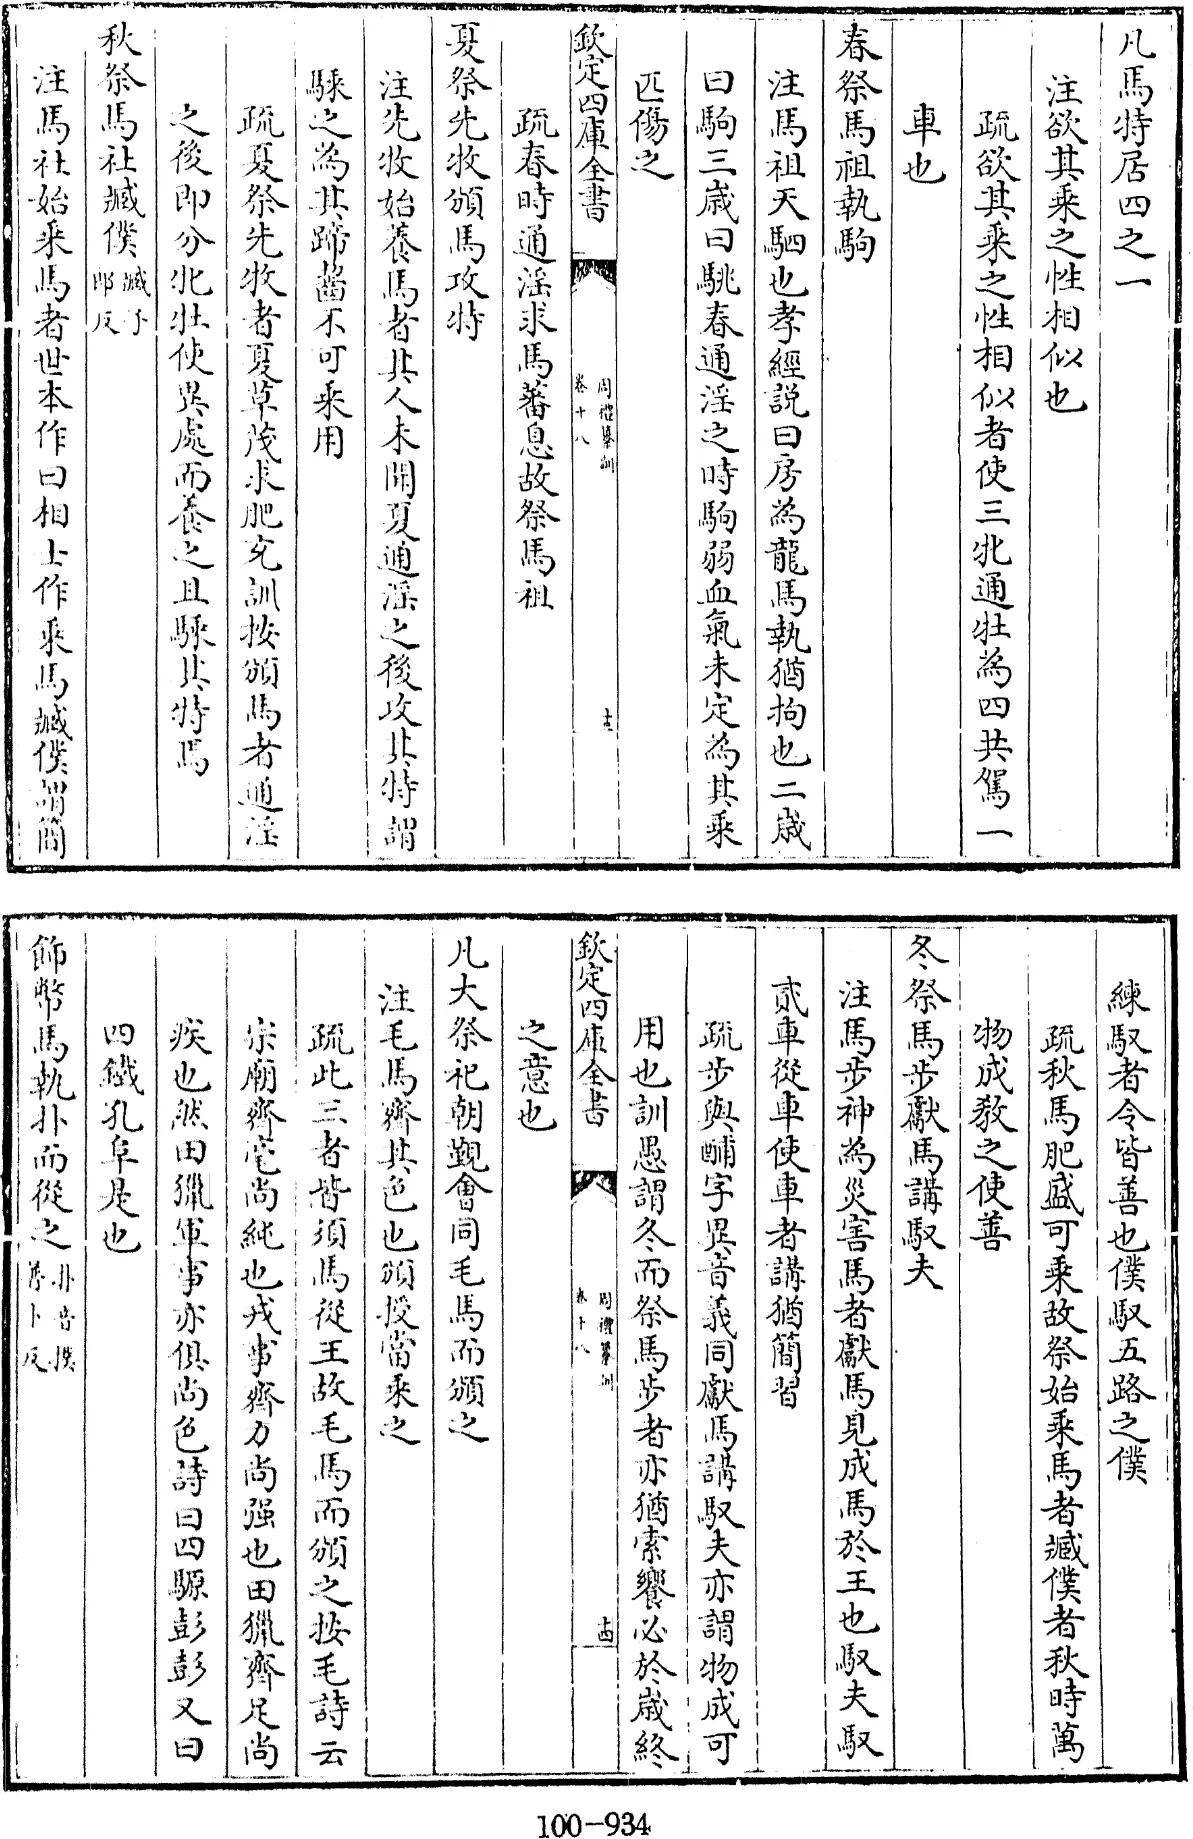 凡馬特居四之一
注欲其乘之性相似也
疏欲其乘之性相似者使三牝通牡為四共駕一
車也
春祭馬祖執駒
注馬祖天駟也孝經説曰房為龍馬執猶拘也二歲
曰駒三歲曰駣春通淫之時駒弱血氣未定為其乘
匹傷之
欽定四庫全書
周禮纂訓
卷十八
十三
疏春時通淫求馬蕃息故祭馬祖
夏祭先牧頒馬攻特
注先牧始養馬者其人未聞夏通淫之後攻其特謂
騬之為其蹄齧不可乘用
疏夏祭先牧者夏草茂求肥充訓按頒馬者通淫
之後即分牝牡使異處而養之且騬其特馬
秋祭馬社臧僕臧子
郎反
注馬社始乘馬者世本作曰相士作乘馬臧僕謂簡
練馭者令皆善也僕馭五路之僕
疏秋馬肥盛可乘故祭始乘馬者臧僕者秋時萬
物成教之使善
冬祭馬步獻馬講馭夫
注馬步神為災害馬者獻馬見成馬於王也馭夫馭
貳車從車使車者講猶簡習
疏步與酺字異音義同獻馬講馭夫亦謂物成可
用也訓愚謂冬而祭馬步者亦猶索饗必於歲終
欽定四庫全書
周禮纂訓
卷十八
十四
之意也
凡大祭祀朝覲會同毛馬而頒之
注毛馬齊其色也頒授當乘之
疏此三者皆須馬從王故毛馬而頒之按毛詩云
宗廟齊毫尚純也戎事齊力尚强也田獵齊足尚
疾也然田獵軍事亦俱尚色詩曰四騵彭彭又曰
四鐵孔阜是也
飾幣馬執扑而從之扑音撲
普卜反
100-934